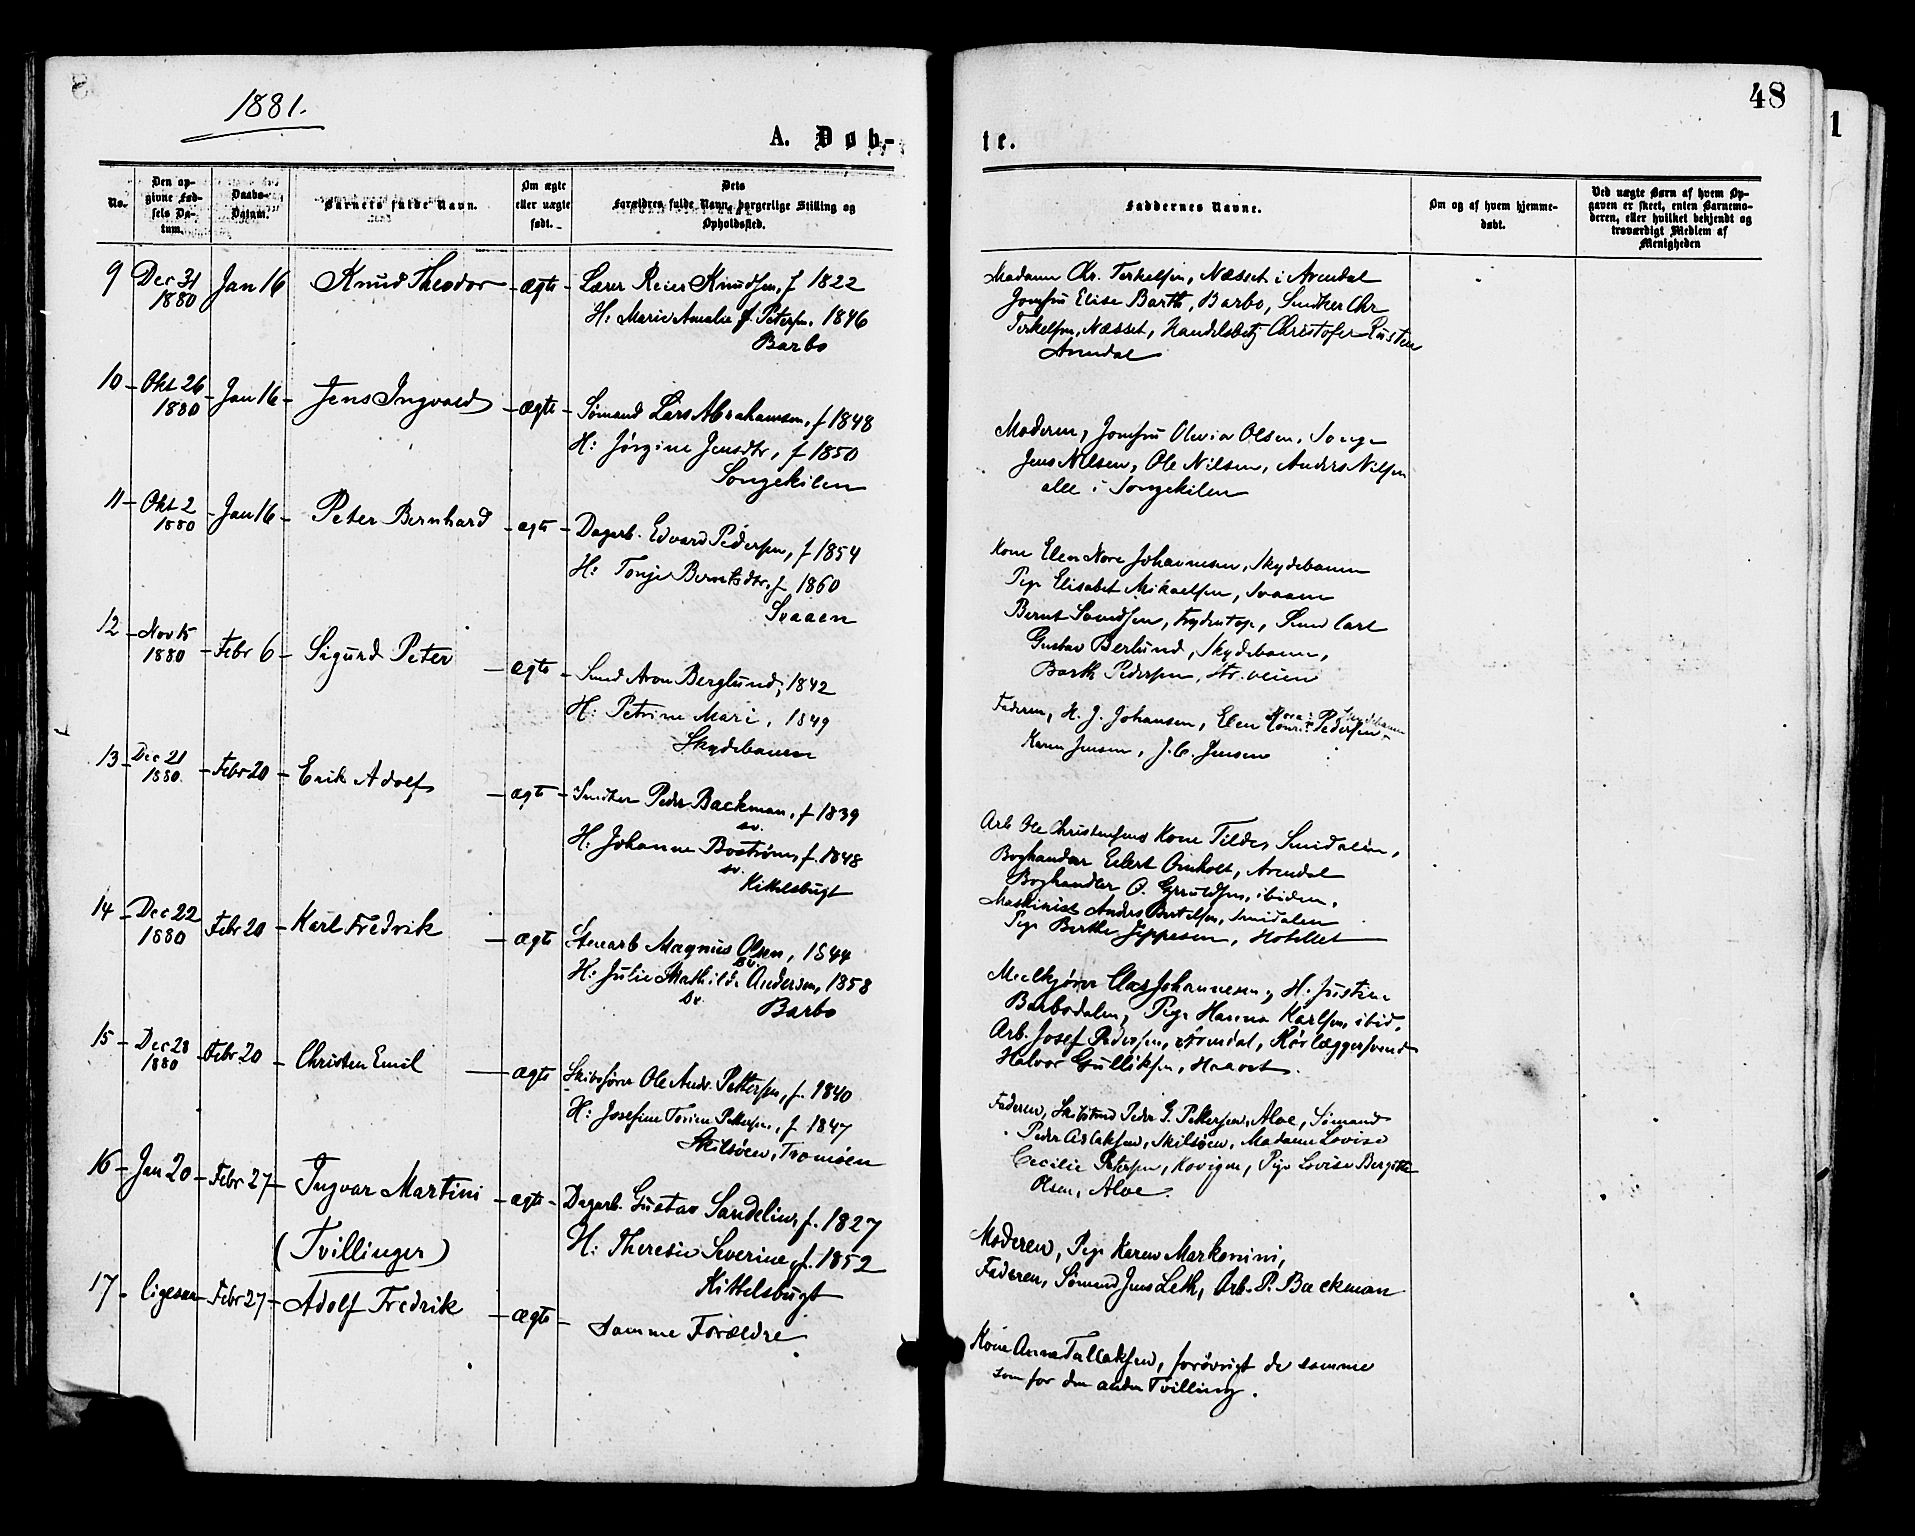 1881.
48
1
A. Døb-
te.
No.
Den opgivne Fødsels Datum.
Daabs-Datum.
Barnets fulde Navn.
Om ægte eller uægte født.
Dets Forældres fulde Navn, borgerlige Stilling og Opholdssted.
Faddernes Navne.
Om og af hvem hjemmedøbt.
Ved uægte Børn af hvem Opgaven er skeet, enten Barnemoderen, eller hvilket bekjendt og troværdigt Medlem af Menigheden
9 Dec 31 1880 Jan 16 Knud Theodor ægte Lærer Reier Knudsen, f 1822
H: Marie Amalie f. Petersen. 1846
Barbo
Madame Chr. Terkelsen, Næsset i Arendal
Jomfru Elise Barth, Barbo, Snedker Chr
Terkelsen, Næsset, Handelsbetj Christofer
Arendal
10 Okt 26 1880 Jan 16 Jens Ingvald ægte Sømand Lars Abrahamsen, f 1848
H: Jørgine Jensdtr, f 1850
Songekilen
Moderen, Jomfru Olevia Olsen, Songe
Jens Nilsen, Ole Nilsen, Anders Nilsen
alle i Songekilen
11 Okt 2 1880 Jan 16 Peter Bernhard ægte Dagarb. Edvard Pedersen, f 1854
H: Tonje Berntsdtr, f 1860
Svaaen
Kone Elen Nore Johannesen, Skydebanen
Pige Elisabet Mikaelsen, Svaaen
Bernt Svendsen, Smed Carl
Gustav Berlund, Skydebanen,
Barth Pedersen, Str. veien
12 Nov 15 1880 Febr 6 Sigurd Peter ægte Smed Aron Berglund, 1842
H: Petrine Mari, 1849
Skydebanen
Faderen, H. J. Johansen, Elen Pedersen
Karen Jensen, J. C. Jensen
13 Dec 21 1880. Febr 20 Erik Adolf ægte Snedker Peder Backman, f 1839
sv.
H. Johanne Bostrøm, f. 1848
sv.
Kittelsbugt
Arb Ole Christensens Kone Tilde, Smidalen,
Boghandler Eilert Omholt, Arendal
Boghandler O. ibidem,
Maskinist Anders Bertelsen, Smidalen
Pige Berthe Jeppesen, Hotellet
14 Dec 22 1880 Febr 20 Karl Fredrik ægte Stenarb Magnus Olsen, 1844
sv.
H: Julie Mathilde Andersen, 1858
sv.
Barbo
Melkjører Claes Johannesen, H. Justine
Barbodalen, Pige Hanna Karlsen, ibid.
Arb. Josef Pedersen, Arendal, Rørlæggersvend
Halvor Gulliksen, Haavet.
15 Dec 28 1880 Febr 20 Christen Emil ægte Skibsfører Ole Andr. Pettersen, f. 1840
H: Josefine Torine Pettersen, f 1847
Skilsøen, Tromøen
Faderen, Skibstmd Peder G. Pettersen, Alve, Sømand
Peder Aslaksen, Skilsøen, Madame Lovise
Cecilie Petersen, Kovigen, Pige Lovise Bergitte
Olsen, Alve.
16 Jan 20 Febr 27 Ingvar Martini ægte Dagarb. Gustav Sandelin, f. 1827
H: Theresie Severine, f. 1852
Kittelsbugt
Moderen, Pige Karen Markonini,
Faderen, Sømand Jens Leth, Arb. P. Backman
(Tvillinger)
17. ligesaa Febr 27 Adolf Fredrik ægte Samme Forældre
Kone Anne Tallaksen, forøvrigt de samme
som for den anden Tvilling.